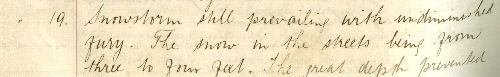 " 19. Snowstorm still prevailing with undiminished
fury. The snow in the streets being from
three to four feet. The great depth prevented